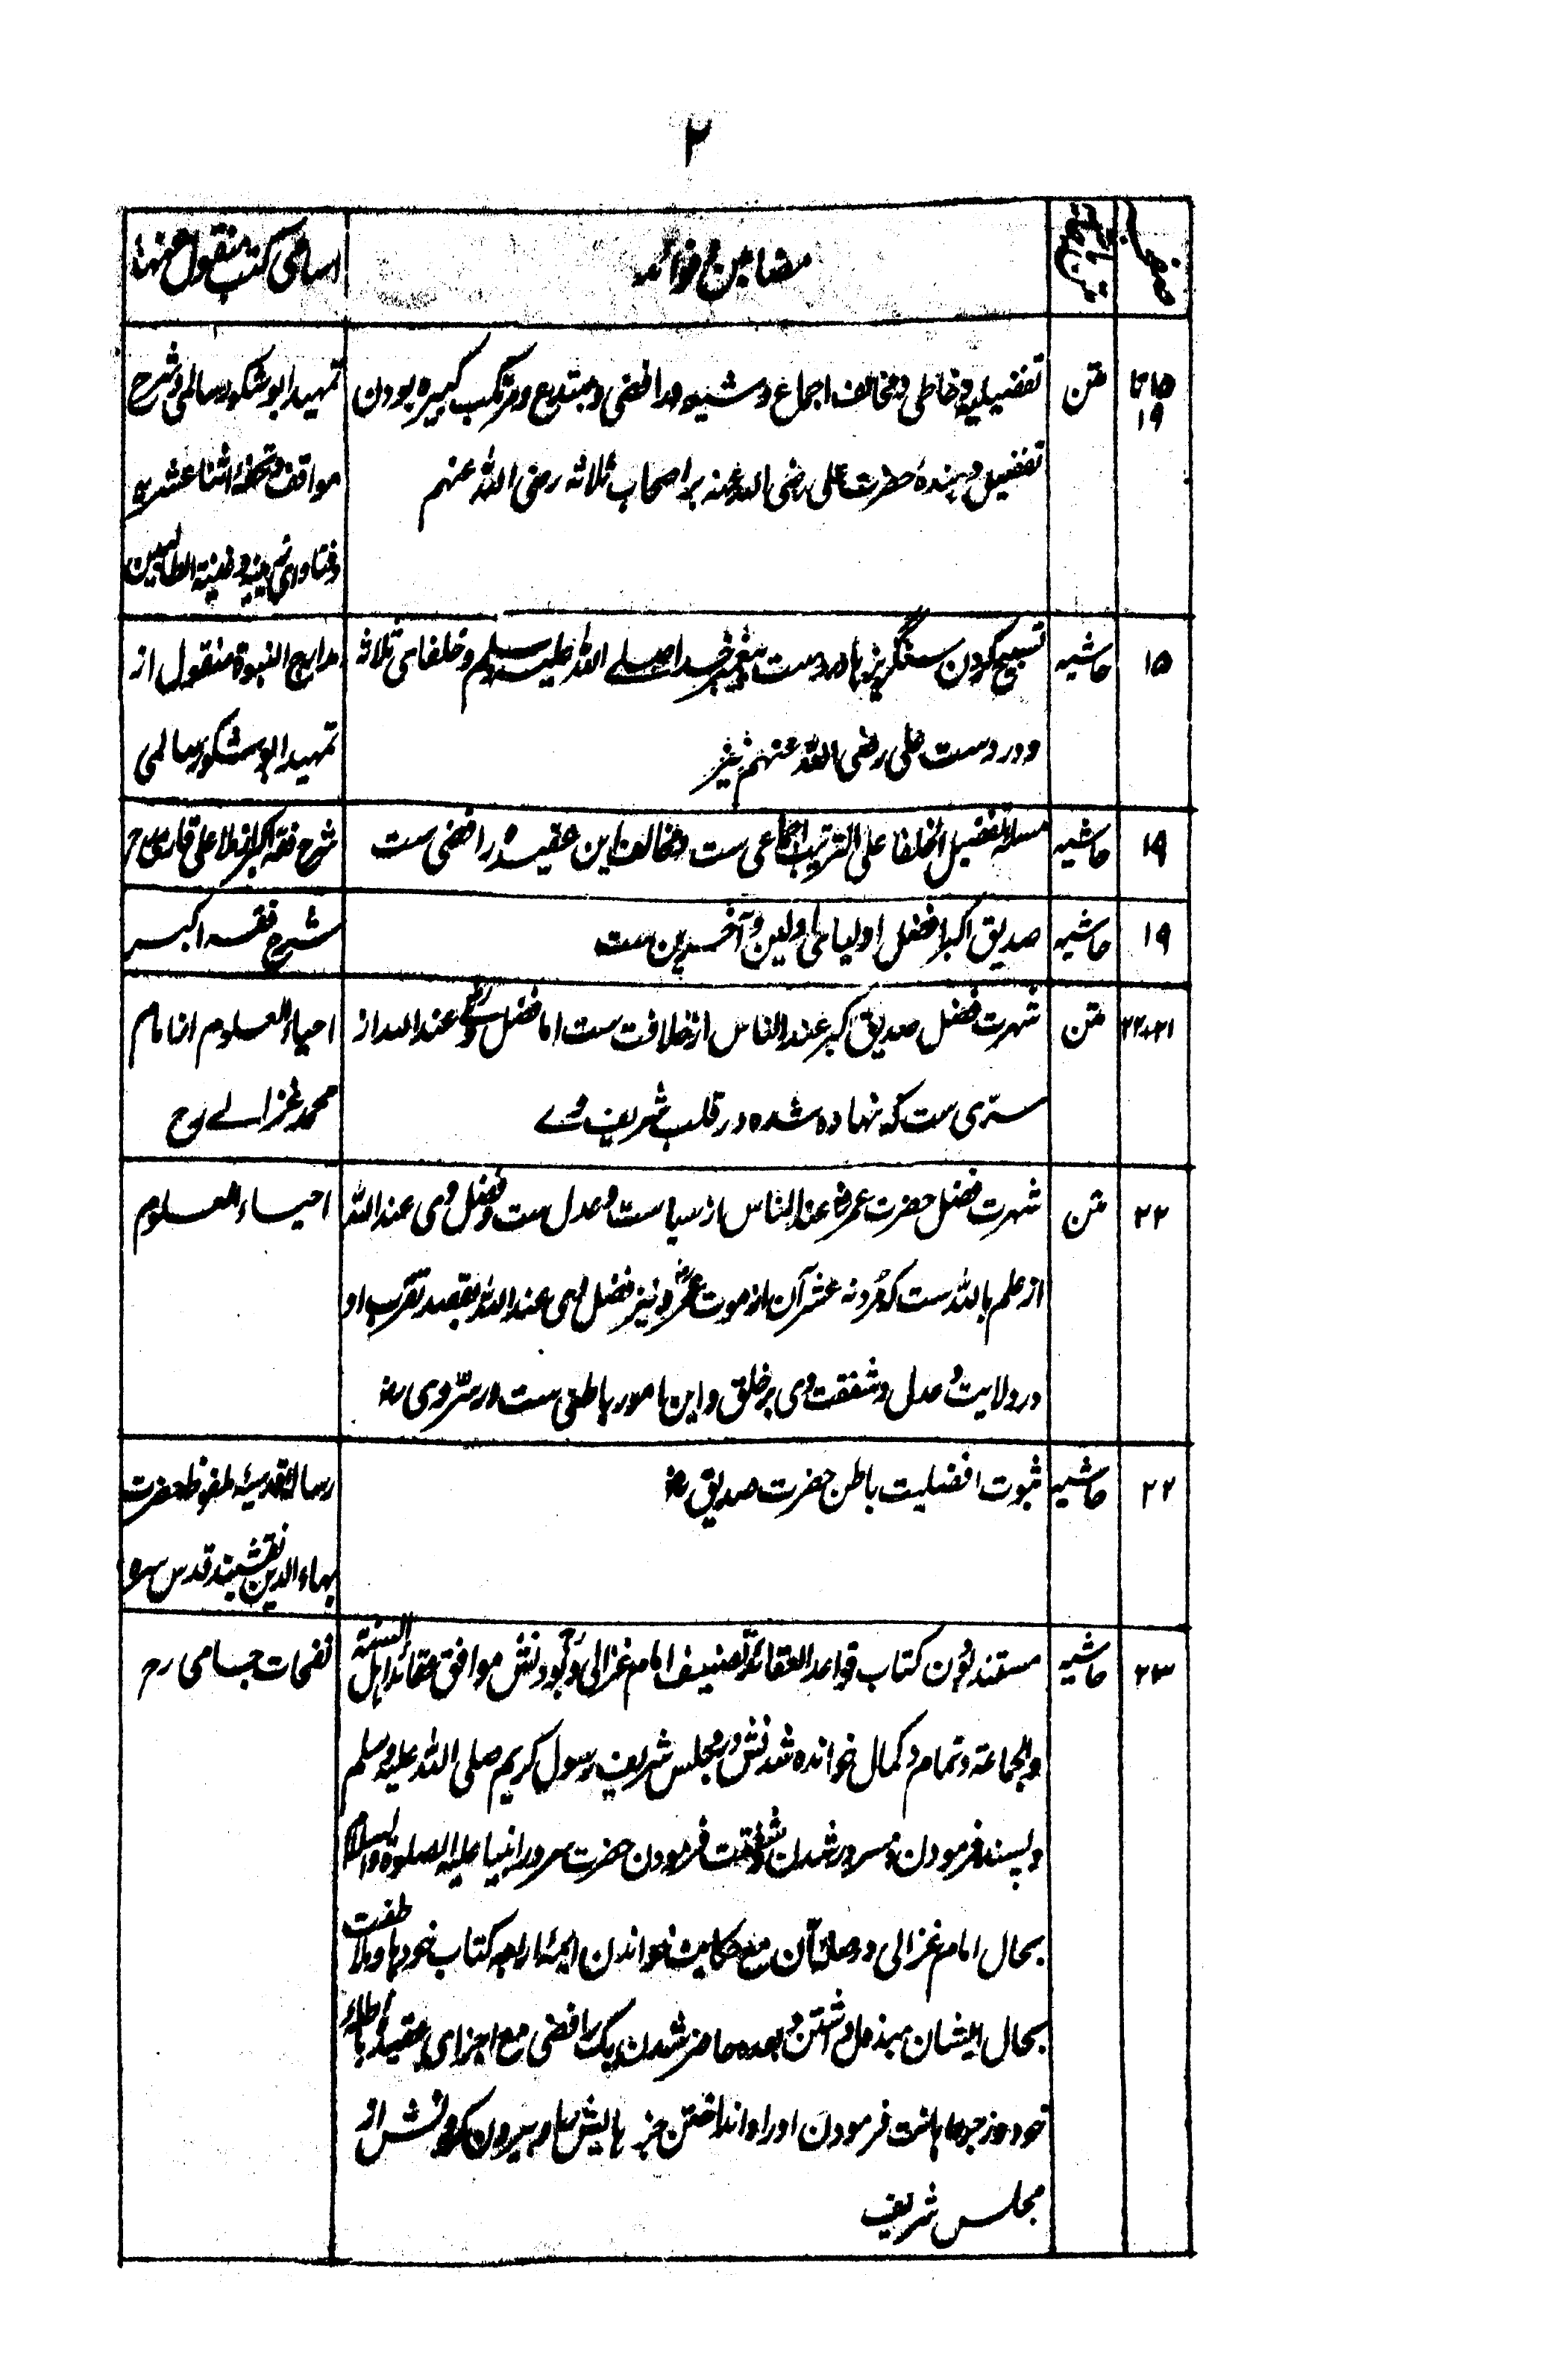 ۲
مضامین و فوائد
اسامی کتب منقول عنها
۱۵ تا
۱۹
متن
تفضیلیه و خاطی و مخالف اجماع و شیعه و رافضی و مبتدع و مرتکب کبیره بودن
تفضیل دهندهٔ حضرت علی رضی الله عنه بر اصحاب ثلاثه رضی الله عنهم
تمهید ابو شکور سالمی و شرح
مواقف و تحفهٔ اثنا عشریه
و غنیة الطالبین
۱۵
حاشیه
تسبیح کردن سنگریزها در دست پیغمبر خدا صلے الله علیه وسلم و خلفای ثلاثه
و در دست علی رضی الله عنهم نیز
مدارج النبوة منقول از
تمهید ابو شکور سالمی
۱۹
حاشیه
مسئله تفضیل الخلفا علی الترتیب اجماعی ست و مخالف این عقیده رافضی ست
شرح فقه اکبر از ملا علی قاری رح
۱۹
حاشیه
صدیق اکبر افضل اولیای اولین و آخرین ست
شرح فقه اکبر
۲۱ و ۲۲
متن
شهرت فضل صدیق اکبر عند الناس از خلافت ست اما فضل وے عند الله از
سرّی ست که نهاده شده در قلب شریف وے
احیاء العلوم از امام
محمد غزالے رح
۲۲
متن
شهرت فضل حضرت عمر رض عند الناس از سیاست و عدل ست و فضل وی عند الله
از علم بالله ست که مُرد نه عشر آن از موت عمر رض و نیز فضل وی عند الله بقصد تقرب او
در ولایت و عدل و شفقت وی بر خلق و این امور باطنی ست در سرّ وی رض
احیاء العلوم
۲۲
حاشیه
ثبوت افضلیت باطن حضرت صدیق رض
رسالهٔ قدسیه ملفوظ حضرت
بهاء الدین نقشبند قدس سره
۲۳
حاشیه
مستند بودن کتاب قواعد العقائد تصنیف امام غزالی و بودنش موافق عقائد اهل السنة
والجماعة و تمام و کمال خوانده شدنش در مجلس شریف رسول کریم صلی الله علیه وسلم
و پسند فرمودن و مسرور شدن و شفقت فرمودن حضرت سرور انبیا علیه الصلوة والسلام
بحال امام غزالی مع حکایت خواندن ایمهٔ اربعه کتاب خودها و ملاطفت
بحال ایشان مبذول داشتن و بعده حاضر شدن یک رافضی مع اجزای عقیدهٔ باطلهٔ
خود و زجر و اهانت فرمودن او را و انداختن جزهایش و بیرون کردنش از
مجلس شریف
نفحات جامی رح